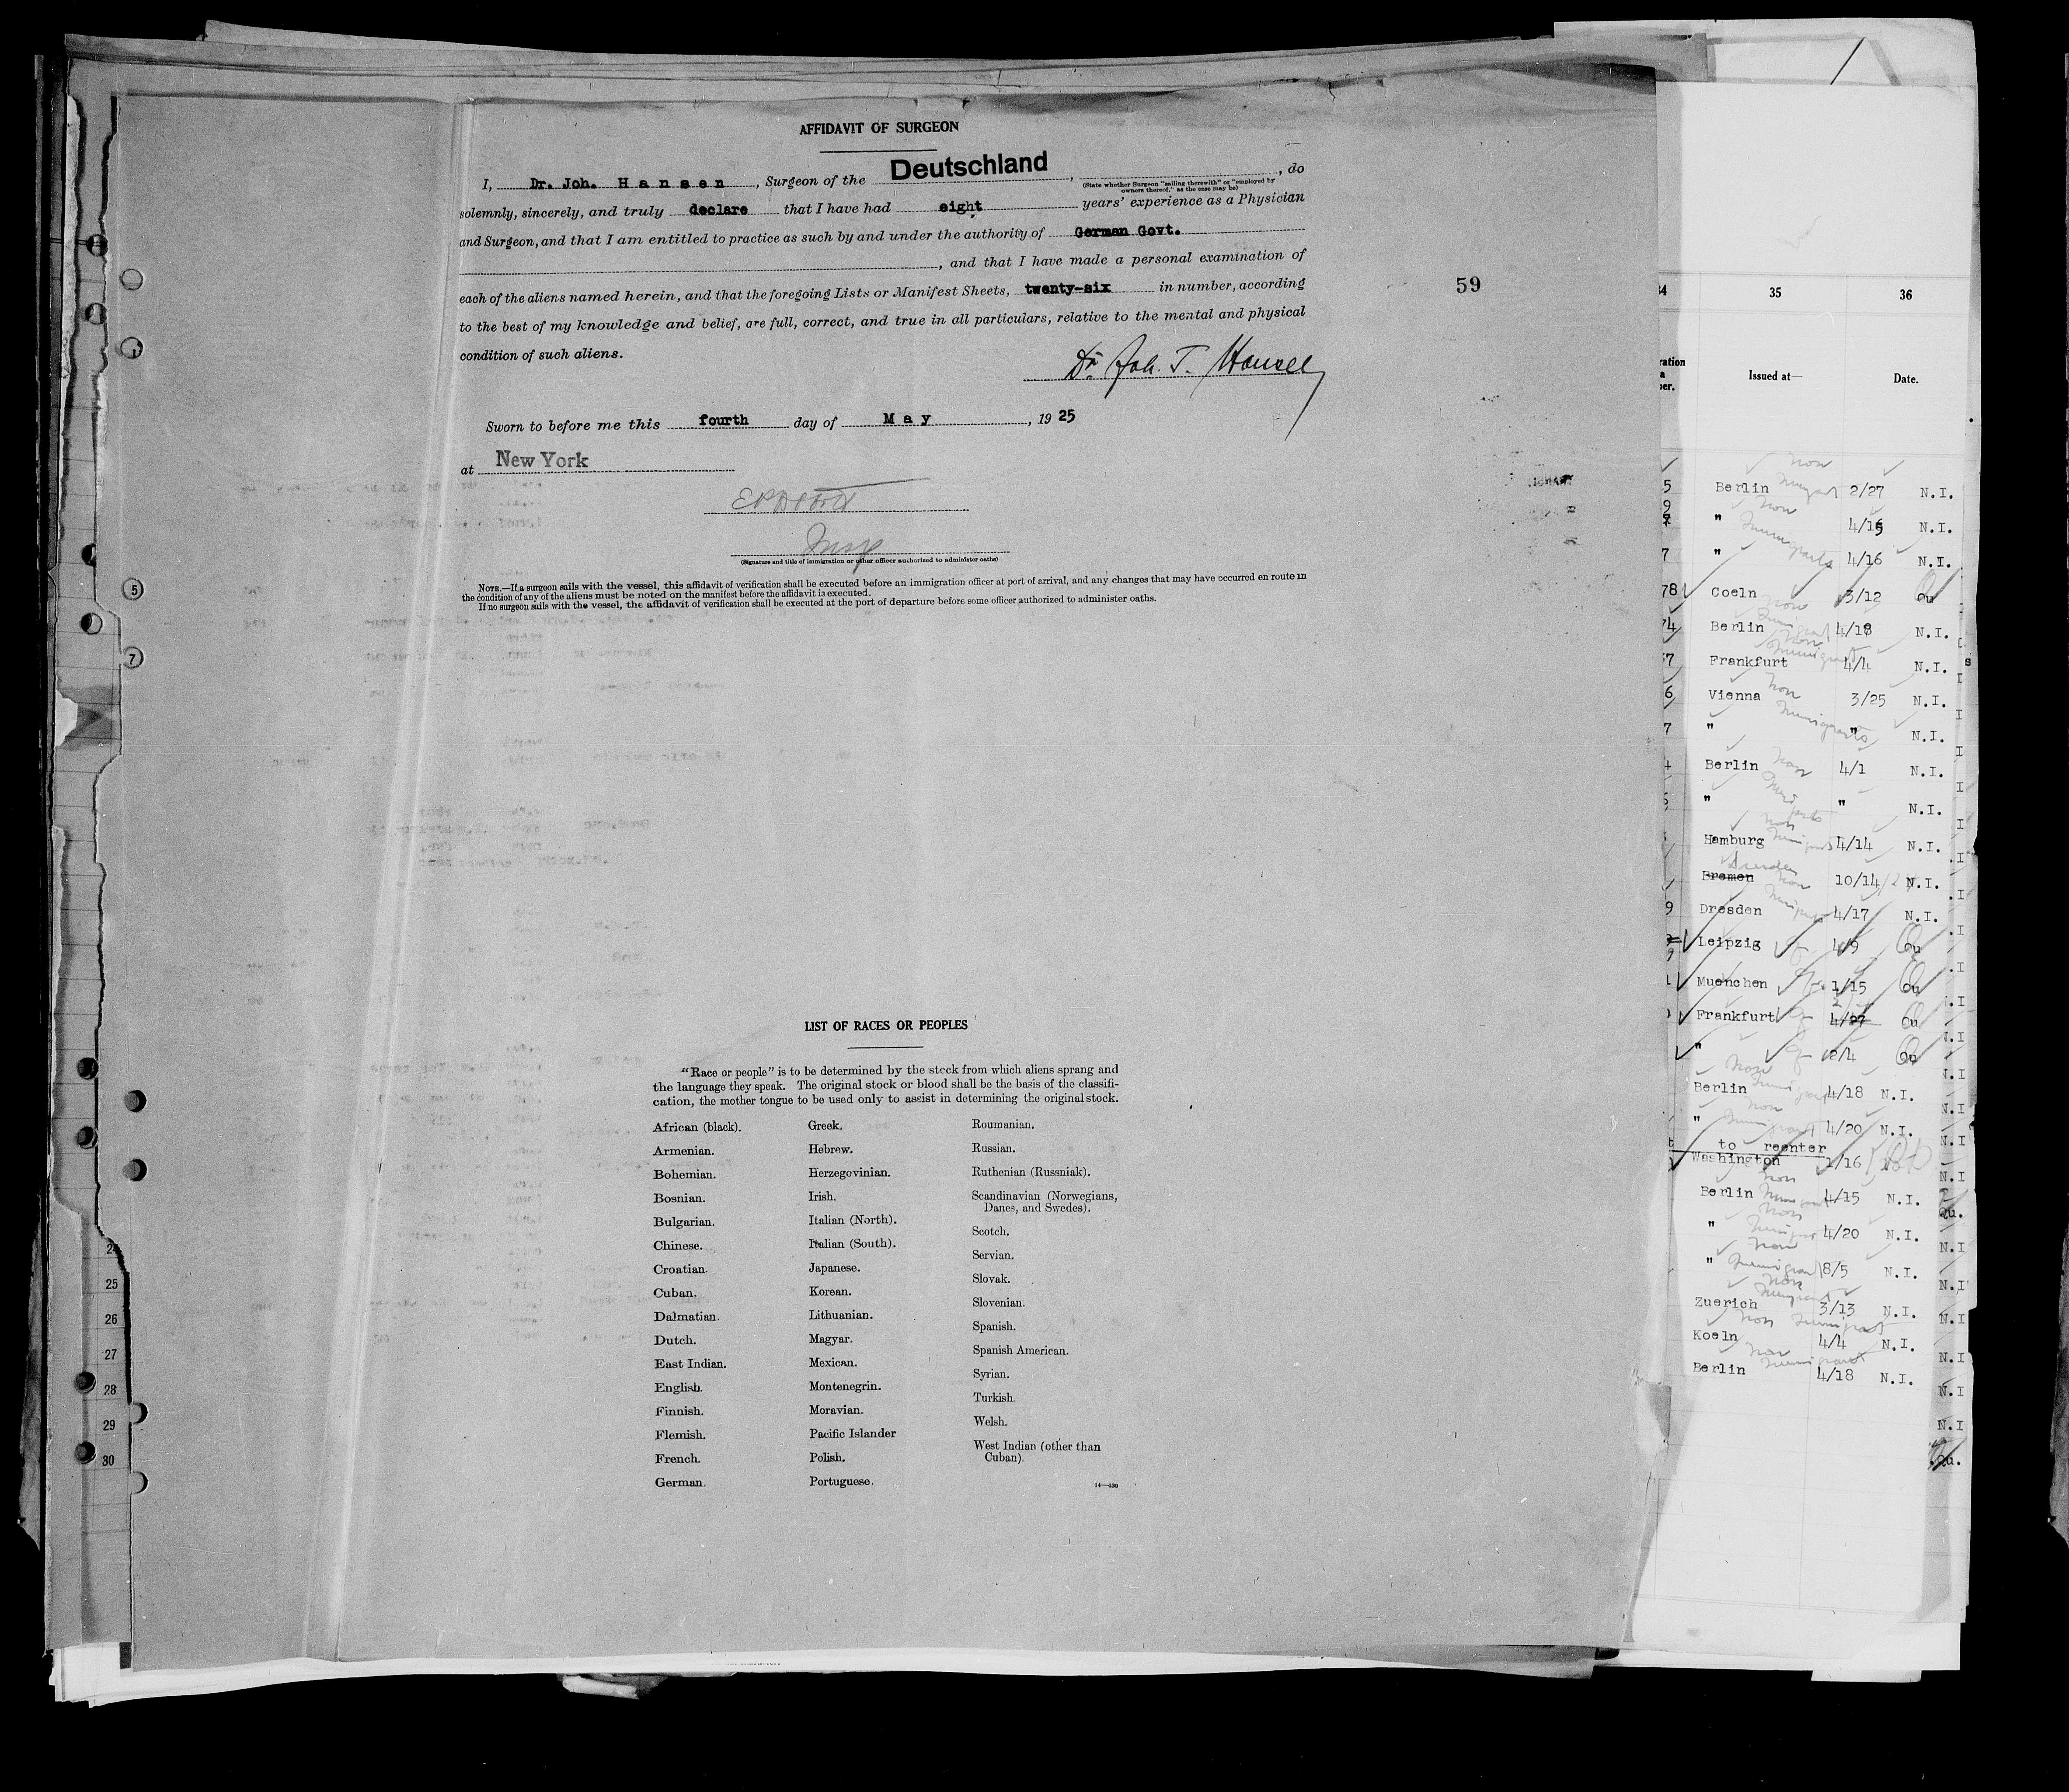 AFFIDAVIT OF SURGEON
I, Dr. Joh. Hansen, Surgeon of the Deutschland, , do
(State whether Surgeon "sailing therewith" or "employed by
owners thereof," as the case may be)
solemnly, sincerely, and truly declare that I have had eight years' experience as a Physician
and Surgeon, and that I am entitled to practice as such by and under the authority of German Govt.
, and that I have made a personal examination of
each of the aliens named herein, and that the foregoing Lists or Manifest Sheets, twenty-six in number, according
to the best of my knowledge and belief, are full, correct, and true in all particulars, relative to the mental and physical
condition of such aliens.
Dr. Joh. T. Hansen
Sworn to before me this fourth day of May, 1925
at New York
Insp
(Signature and title of immigration or other officer authorized to administer oaths)
NOTE.—If a surgeon sails with the vessel, this affidavit of verification shall be executed before an immigration officer at port of arrival, and any changes that may have occurred en route in
the condition of any of the aliens must be noted on the manifest before the affidavit is executed.
If no surgeon sails with the vessel, the affidavit of verification shall be executed at the port of departure before some officer authorized to administer oaths.
59
LIST OF RACES OR PEOPLES
"Race or people" is to be determined by the stock from which aliens sprang and
the language they speak. The original stock or blood shall be the basis of the classifi-
cation, the mother tongue to be used only to assist in determining the original stock.
African (black).
Armenian.
Bohemian.
Bosnian.
Bulgarian.
Chinese.
Croatian.
Cuban.
Dalmatian.
Dutch.
East Indian.
English.
Finnish.
Flemish.
French.
German.
Greek.
Hebrew.
Herzegovinian.
Irish.
Italian (North).
Italian (South).
Japanese.
Korean.
Lithuanian.
Magyar.
Mexican.
Montenegrin.
Moravian.
Pacific Islander
Polish.
Portuguese.
Roumanian.
Russian.
Ruthenian (Russniak).
Scandinavian (Norwegians,
Danes, and Swedes).
Scotch.
Servian.
Slovak.
Slovenian.
Spanish.
Spanish American.
Syrian.
Turkish.
Welsh.
West Indian (other than
Cuban).
14—430
5
7
24
25
26
27
28
29
30
34 35 36
Issued at— Date.
Berlin 2/27 N.I.
" 4/15 N.I.
" 4/16 N.I.
78 Coeln 3/12 Qu
Berlin 4/18 N.I.
Frankfurt 4/4 N.I.
Vienna 3/25 N.I.
" " N.I.
Berlin 4/1 N.I.
" " N.I.
Hamburg 4/14 N.I.
Bremen Dresden 10/14 N.I.
Dresden 4/17 N.I.
Leipzig 4/9 Qu
Muenchen 1/15 Qu
Frankfurt 4/27 Qu
" 2/4 Qu
Berlin 4/18 N.I.
" 4/20 N.I.
to reenter
Washington 1/16
Berlin 4/15 N.I.
" 4/20 N.I.
" 8/5 N.I.
Zuerich 3/13 N.I.
Koeln 4/4 N.I.
Berlin 4/18 N.I.